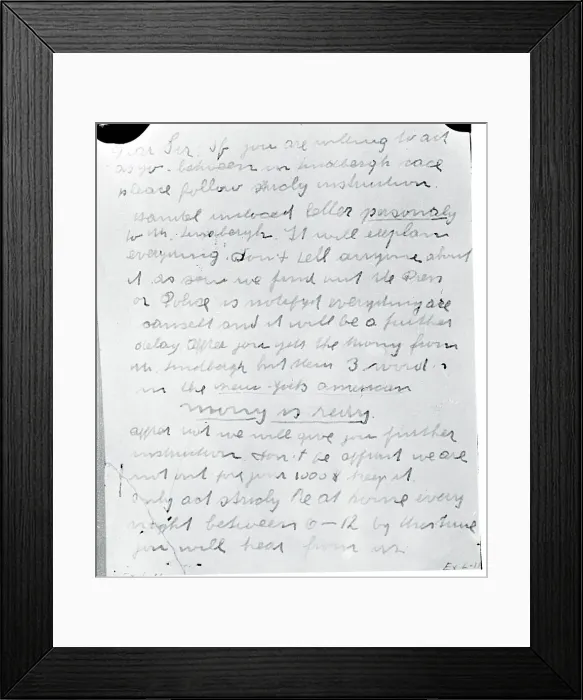 Dear Sir: If you are willing to act
as go-between in Lindbergh cace
pleace follow stricly instruction.
Handel inclosed letter personaly
to Mr. Lindbergh. It will explain
everything. Don't tell anyone about
it as soon we find out the Press
or Police is notifyd everything are
cansell and it will be a further
delay. Affter you gett the mony from
Mr. Lindbergh put these 3 words
in the New-York american
mony is redy.
affter not we will give you further
instruction. Don't be affrait we are
not out for your 1000$ keep it.
Only act stricly. Be at home every
night between 6-12 by this time
you will hear from us.